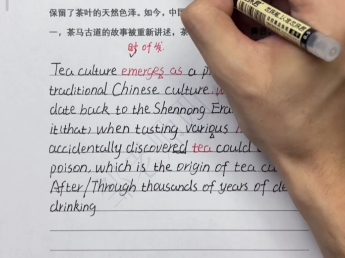 保留了茶叶的天然色泽。如今，中国
一，茶马古道的故事被重新讲述，茶
of
Tea culture emerges as a p
traditional Chinese culture.
date back to the Shennong Era
it(that) when tasting various
accidentally discovered tea could
poison, which is the origin of tea cu
After/Through thousands of years of de
drinking